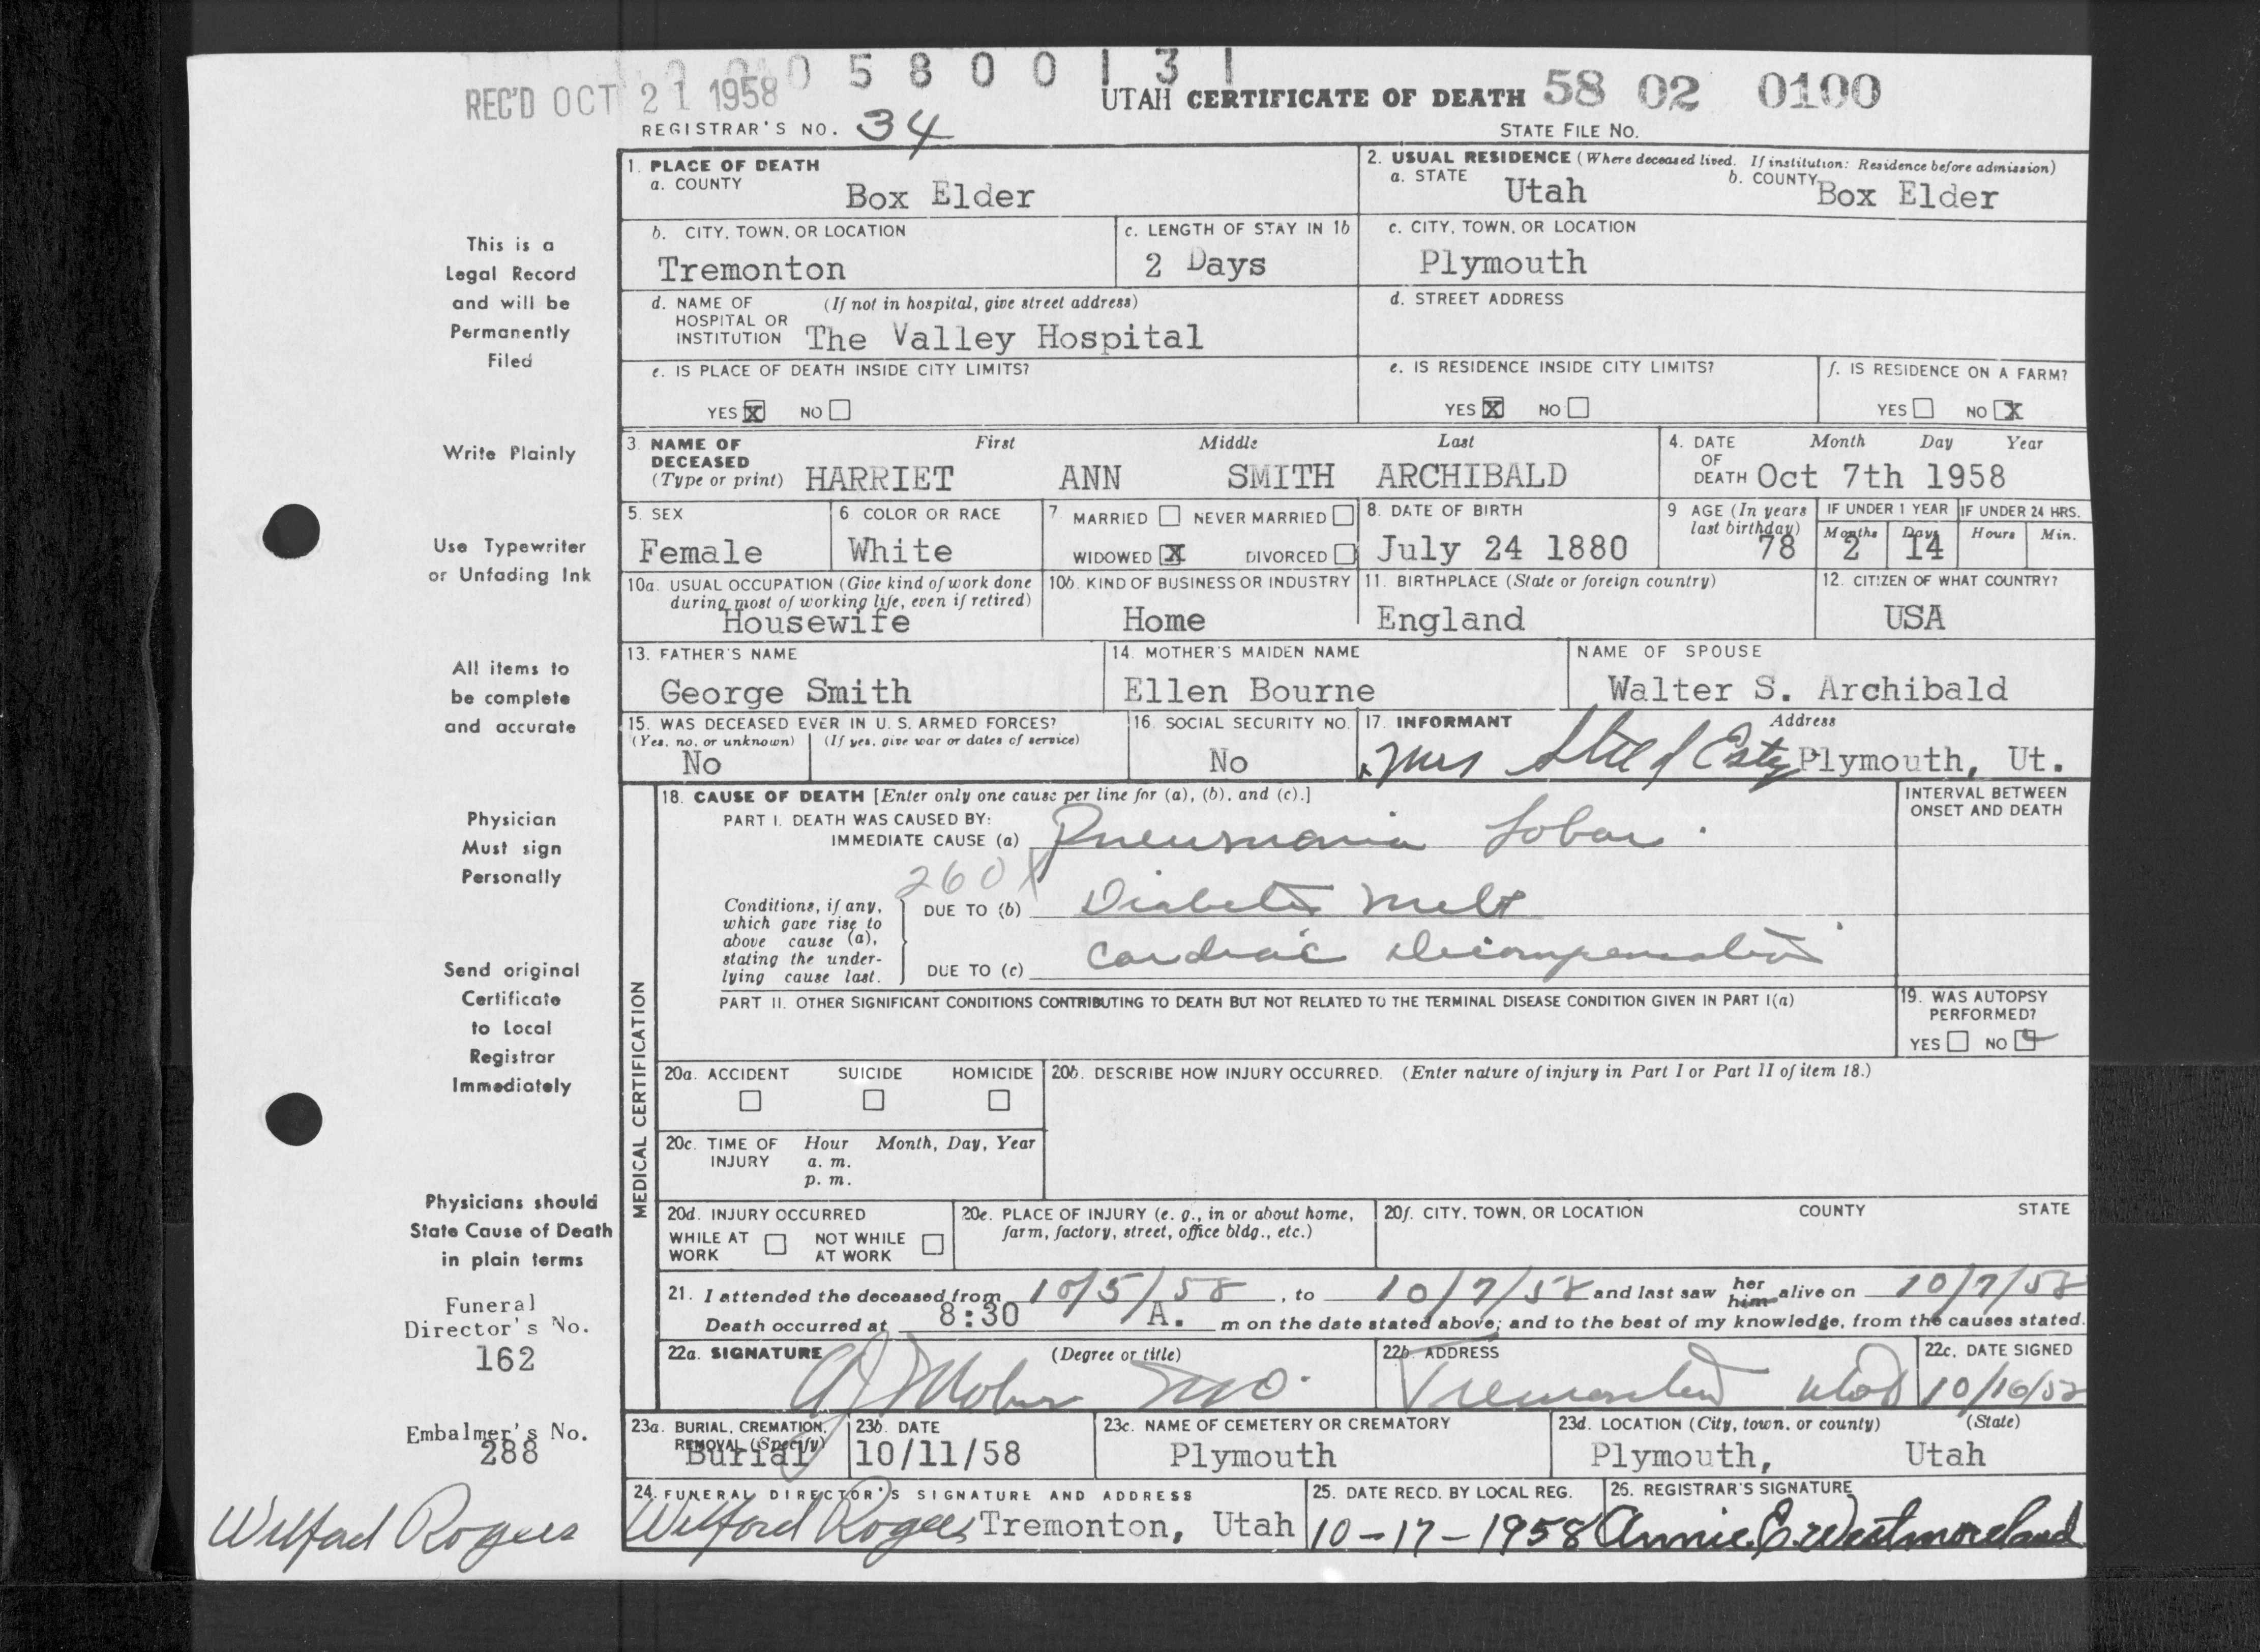 REC'D OCT 21 1958
5 8 0 0 1 3 1
UTAH CERTIFICATE OF DEATH 58 02 0100
REGISTRAR'S NO. 34
STATE FILE No.
This is a
Legal Record
and will be
Permanently
Filed
Write Plainly
Use Typewriter
or Unfading Ink
All items to
be complete
and accurate
Physician
Must sign
Personally
Send original
Certificate
to Local
Registrar
Immediately
Physicians should
State Cause of Death
in plain terms
Funeral
Director's No.
162
Embalmer's No.
288
Wilford Rogers
1. PLACE OF DEATH
a. COUNTY
Box Elder
2. USUAL RESIDENCE (Where deceased lived. If institution: Residence before admission)
a. STATE Utah b. COUNTY Box Elder
b. CITY, TOWN, OR LOCATION
Tremonton
c. LENGTH OF STAY IN 1b
2 Days
c. CITY, TOWN, OR LOCATION
Plymouth
d. NAME OF (If not in hospital, give street address)
HOSPITAL OR
INSTITUTION The Valley Hospital
d. STREET ADDRESS
e. IS PLACE OF DEATH INSIDE CITY LIMITS?
YES X NO
e. IS RESIDENCE INSIDE CITY LIMITS?
YES X NO
f. IS RESIDENCE ON A FARM?
YES NO X
3. NAME OF First Middle Last
DECEASED
(Type or print) HARRIET ANN SMITH ARCHIBALD
4. DATE Month Day Year
OF
DEATH Oct 7th 1958
5. SEX
Female
6 COLOR OR RACE
White
7. MARRIED NEVER MARRIED
WIDOWED X DIVORCED
8. DATE OF BIRTH
July 24 1880
9 AGE (In years
last birthday)
78
IF UNDER 1 YEAR IF UNDER 24 HRS.
Months Days Hours Min.
2 14
10a. USUAL OCCUPATION (Give kind of work done
during most of working life, even if retired)
Housewife
10b. KIND OF BUSINESS OR INDUSTRY
Home
11. BIRTHPLACE (State or foreign country)
England
12. CITIZEN OF WHAT COUNTRY?
USA
13. FATHER'S NAME
George Smith
14. MOTHER'S MAIDEN NAME
Ellen Bourne
NAME OF SPOUSE
Walter S. Archibald
15. WAS DECEASED EVER IN U. S. ARMED FORCES?
(Yes, no, or unknown) (If yes, give war or dates of service)
No
16. SOCIAL SECURITY NO.
No
17. INFORMANT Address
Mrs Plymouth, Ut.
MEDICAL CERTIFICATION
18. CAUSE OF DEATH [Enter only one cause per line for (a), (b), and (c).]
INTERVAL BETWEEN
ONSET AND DEATH
PART I. DEATH WAS CAUSED BY:
IMMEDIATE CAUSE (a) Pneumonia Lobar.
260X
Conditions, if any,
which gave rise to
above cause (a),
stating the under-
lying cause last.
DUE TO (b) Diabetes Melt
DUE TO (c) Cardiac decompensation
PART II. OTHER SIGNIFICANT CONDITIONS CONTRIBUTING TO DEATH BUT NOT RELATED TO THE TERMINAL DISEASE CONDITION GIVEN IN PART I(a)
19. WAS AUTOPSY
PERFORMED?
YES NO
20a. ACCIDENT SUICIDE HOMICIDE
20b. DESCRIBE HOW INJURY OCCURRED. (Enter nature of injury in Part I or Part II of item 18.)
20c. TIME OF Hour Month, Day, Year
INJURY a. m.
p. m.
20d. INJURY OCCURRED
WHILE AT NOT WHILE
WORK AT WORK
20e. PLACE OF INJURY (e. g., in or about home,
farm, factory, street, office bldg., etc.)
20f. CITY, TOWN, OR LOCATION COUNTY STATE
21. I attended the deceased from 10/5/58, to 10/7/58 and last saw her him alive on 10/7/58
Death occurred at 8:30 A. m on the date stated above; and to the best of my knowledge, from the causes stated.
22a. SIGNATURE (Degree or title)
MD.
22b. ADDRESS
Tremonton Utah
22c. DATE SIGNED
10/16/58
23a. BURIAL, CREMATION,
REMOVAL (Specify)
Burial
23b. DATE
10/11/58
23c. NAME OF CEMETERY OR CREMATORY
Plymouth
23d. LOCATION (City, town, or county) (State)
Plymouth, Utah
24. FUNERAL DIRECTOR'S SIGNATURE AND ADDRESS
Wilford Rogers Tremonton, Utah
25. DATE RECD. BY LOCAL REG.
10-17-1958
26. REGISTRAR'S SIGNATURE
Annie E. Westmoreland